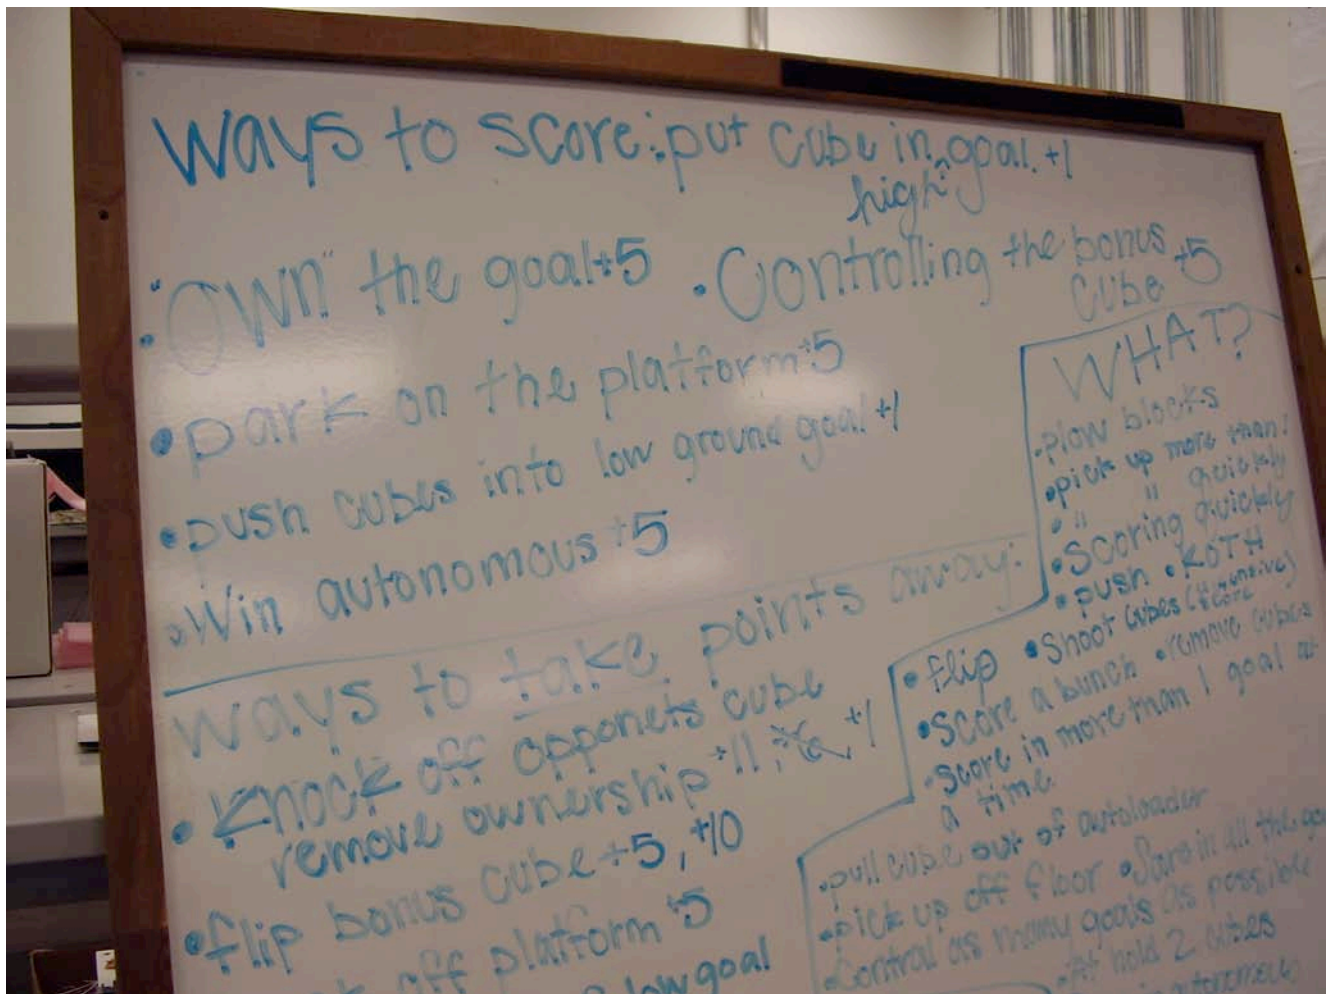 Ways to score: put cube in ^ goal. +1
high
• "Own" the goal +5
• Controlling the bonus
cube +5
• park on the platform +5
• push cubes into low ground goal +1
• Win autonomous +5
ways to take points away:
• Knock off opponets cube
remove ownership +11, +1
• flip bonus cube +5, +10
off platform +5
low goal
WHAT?
• plow blocks
• pick up more than 1
• " " quickly
• Scoring quickly
• push • KOTH
• flip • Shoot cubes (score
• score a bunch • remove cubes
• score in more than 1 goal at
a time
• pull cube out of autoloader
• pick up off floor • in all the
• Control as many goals as possible
• hold 2 cubes
autonomous